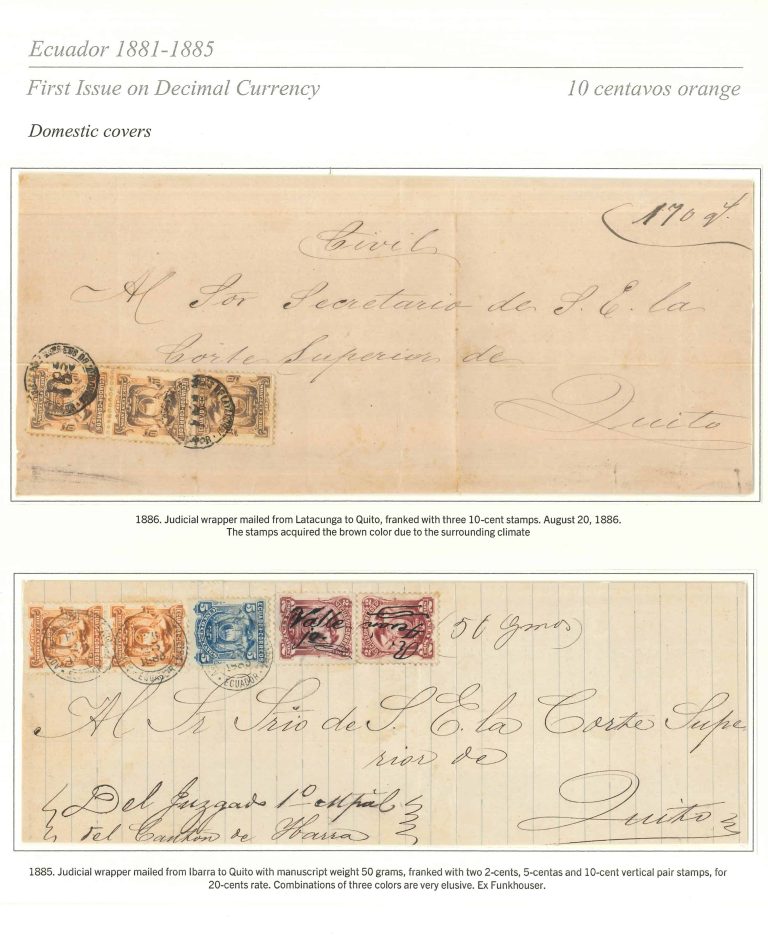 Ecuador 1881-1885
First Issue on Decimal Currency 10 centavos orange
Domestic covers
170 g.
Civil
Al Sor Secretario de S. E. la
Corte Superior de
Quito
1886. Judicial wrapper mailed from Latacunga to Quito, franked with three 10-cent stamps. August 20, 1886.
The stamps acquired the brown color due to the surrounding climate
Valle
(50 Gmos)
Al Sr Srio de S. E. la Corte Supe
rior de
Del Juzgado 1º mpal
del Canton de Ibarra
Quito
1885. Judicial wrapper mailed from Ibarra to Quito with manuscript weight 50 grams, franked with two 2-cents, 5-centas and 10-cent vertical pair stamps, for
20-cents rate. Combinations of three colors are very elusive. Ex Funkhouser.